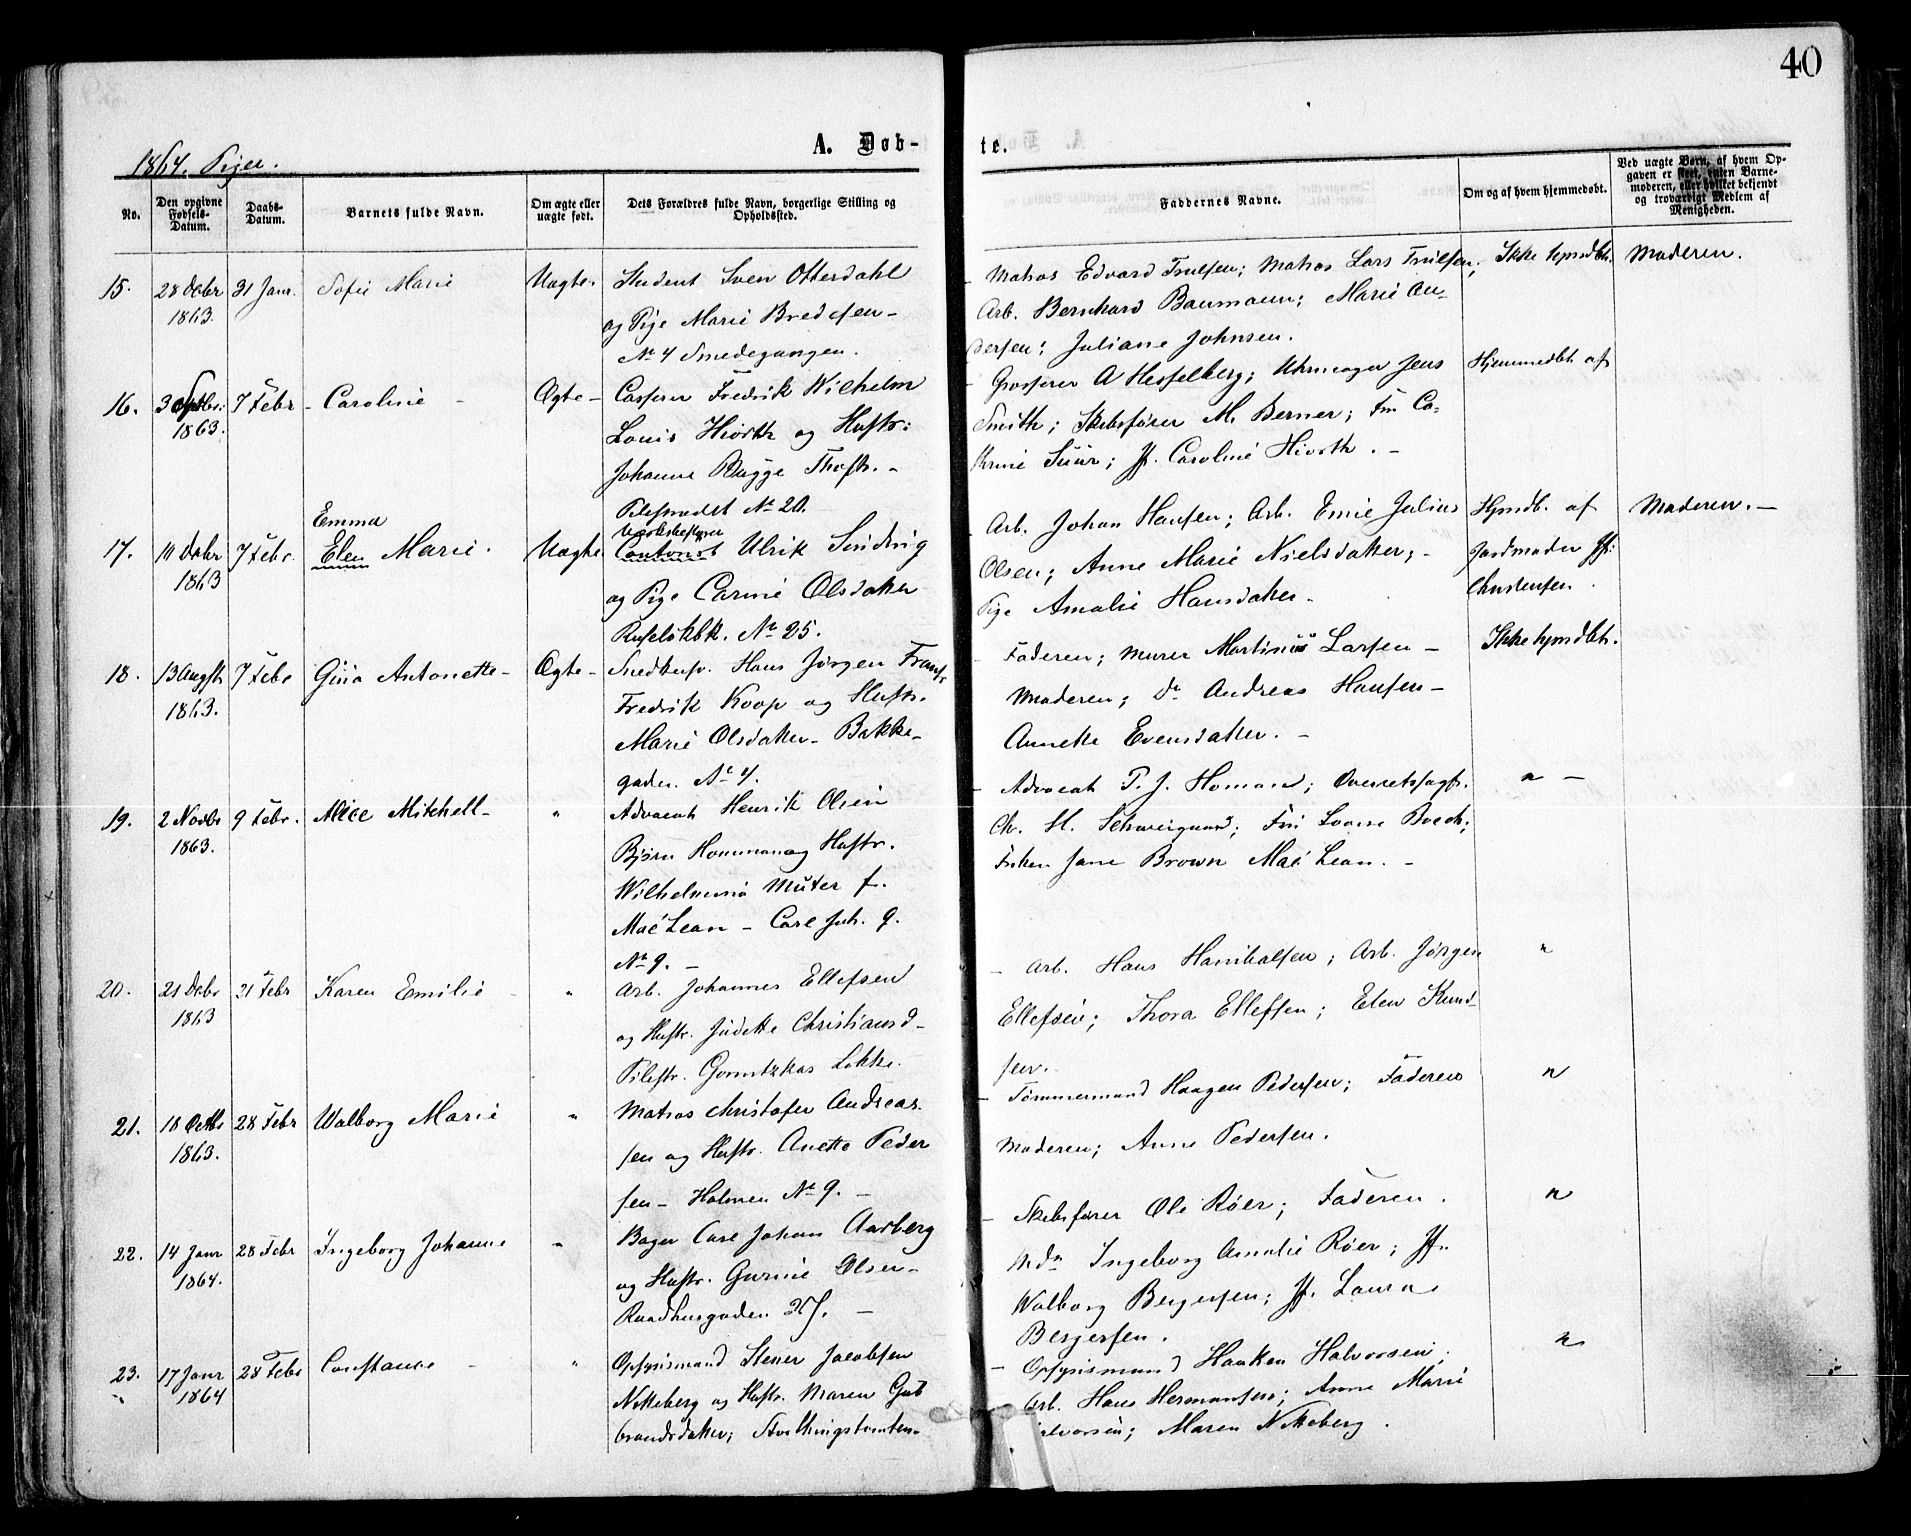 40
A. Døb-
te.
1864. Piger.
No.
Den opgivne Fødsels-Datum.
Daabs-Datum.
Barnets fulde Navn.
Om ægte eller uægte født.
Dets Forældres fulde Navn, borgerlige Stilling og Opholdssted.
Faddernes Navne.
Om og af hvem hjemmedøbt.
Ved uægte Børn, af hvem Opgaven er skeet, enten Barnemoderen, eller hvilket bekjendt og troværdigt Medlem af Menigheden.
15. 28 Decbr 31 Janr. Sofie Marie Uægte. Student Sven Otterdahl
1863. og Pige Marie Bredesen -
No 4 Smedegangen.
- Matros Edvard Trulsen; Matros Lars Trulsen; Ikke hjmdbt. Moderen.
Arb. Bernhard Baumann; Marie An-
dersen; Juliane Johnsen.
16. 3 Septbr: 7 Febr - Caroline - Ægte - Casserer Fredrik Wilhelm
1863. Louis Hiorth og Hustr:
Johanne Bugge Thostr. -
Pilestrædet No 20.
- Grosserer A Hesselberg; Uhrmager Jens Hjemmedbt af
Smith; Skibsfører M. Berner; Frk Ca-
thrine Suur; Jf. Caroline Hiorth. -
17. 11 Decbr 7 Febr. Emma
Elen Marie. Uægte Værksbestyrer
Contorist Ulrik Sindvig
1863 og Pige Carine Olsdatter
Ruseløkbk. No 25.
Arb. Johan Hansen; Arb. Emil Julius Hjmdb. af Moderen. -
Olsen; Anne Marie Nielsdatter; - Jordmoder Jf:
Pige Amalie Hansdatter. Christensen.
18. 13 Augst 7 Febr Gina Antonette - Ægte - Snedkersv. Hans Jørgen Frants
1863. Fredrik Koop og Hustr.
Marie Olsdatter - Bakke-
gaden. No 4.
- Faderen; Murer Martinius Larsen - Ikke hjmdbt.
Moderen; Do Andreas Hansen -
Annette Evensdatter. -
19. 2 Novbr 9 Febr. Alice Mitchell - " Advocat Henrik Olein
1863. Bjørn Homman og Hustr.
Wilhelmina Muter f.
Mac Lean - Carl Joh. g.
No 9. -
- Advocat P. J. Homan; Overretssagf. " -
Ch. H. Schweigaard; Frk Lovise Boeck;
Frøken Jane Brown Mac Lean. -
20. 21 Decbr 21 Febr Karen Emilie - " Arb. Johannes Ellefsen
1863 og Hustr. Judithe Christiansd -
Pilestr. Gornitzkas Løkke.
- Arb. Hans Hanibalsen; Arb. Jørgen "
Ellefsen; Thora Ellefsen; Elen Knud-
sen. -
21. 18 Octbr 28 Febr Walborg Marie " Matros Christofer Andreas-
1863. sen og Hustr. Anette Peder
sen - Holmen No 9. -
- Tømmermand Haagen Pedersen; Faderen "
Moderen; Anne Pedersen.
22. 14 Janr 28 Febr Ingeborg Johanne " Bager Carl Johan Aarberg
1864. og Hustr. Gurine Olsen -
Raadhusgaden 25. -
- Skibsfører Ole Røer; Faderen. "
Mdm Ingeborg Amalie Røer; Jf.
Walborg Bergersen; Jf. Laura
Bergersen.
23. 17 Janr 28 Febr Constance - " Opsynsmand Stener Jacobsen
1864 Nikeberg og Hustr. Maren Gul
brandsdatter; Stolthingstomten -
- Opsynsmand Haaken Halvorsen; "
Arb. Hans Hermansen; Anne Marie
Halvorsen; Maren Nikeberg.